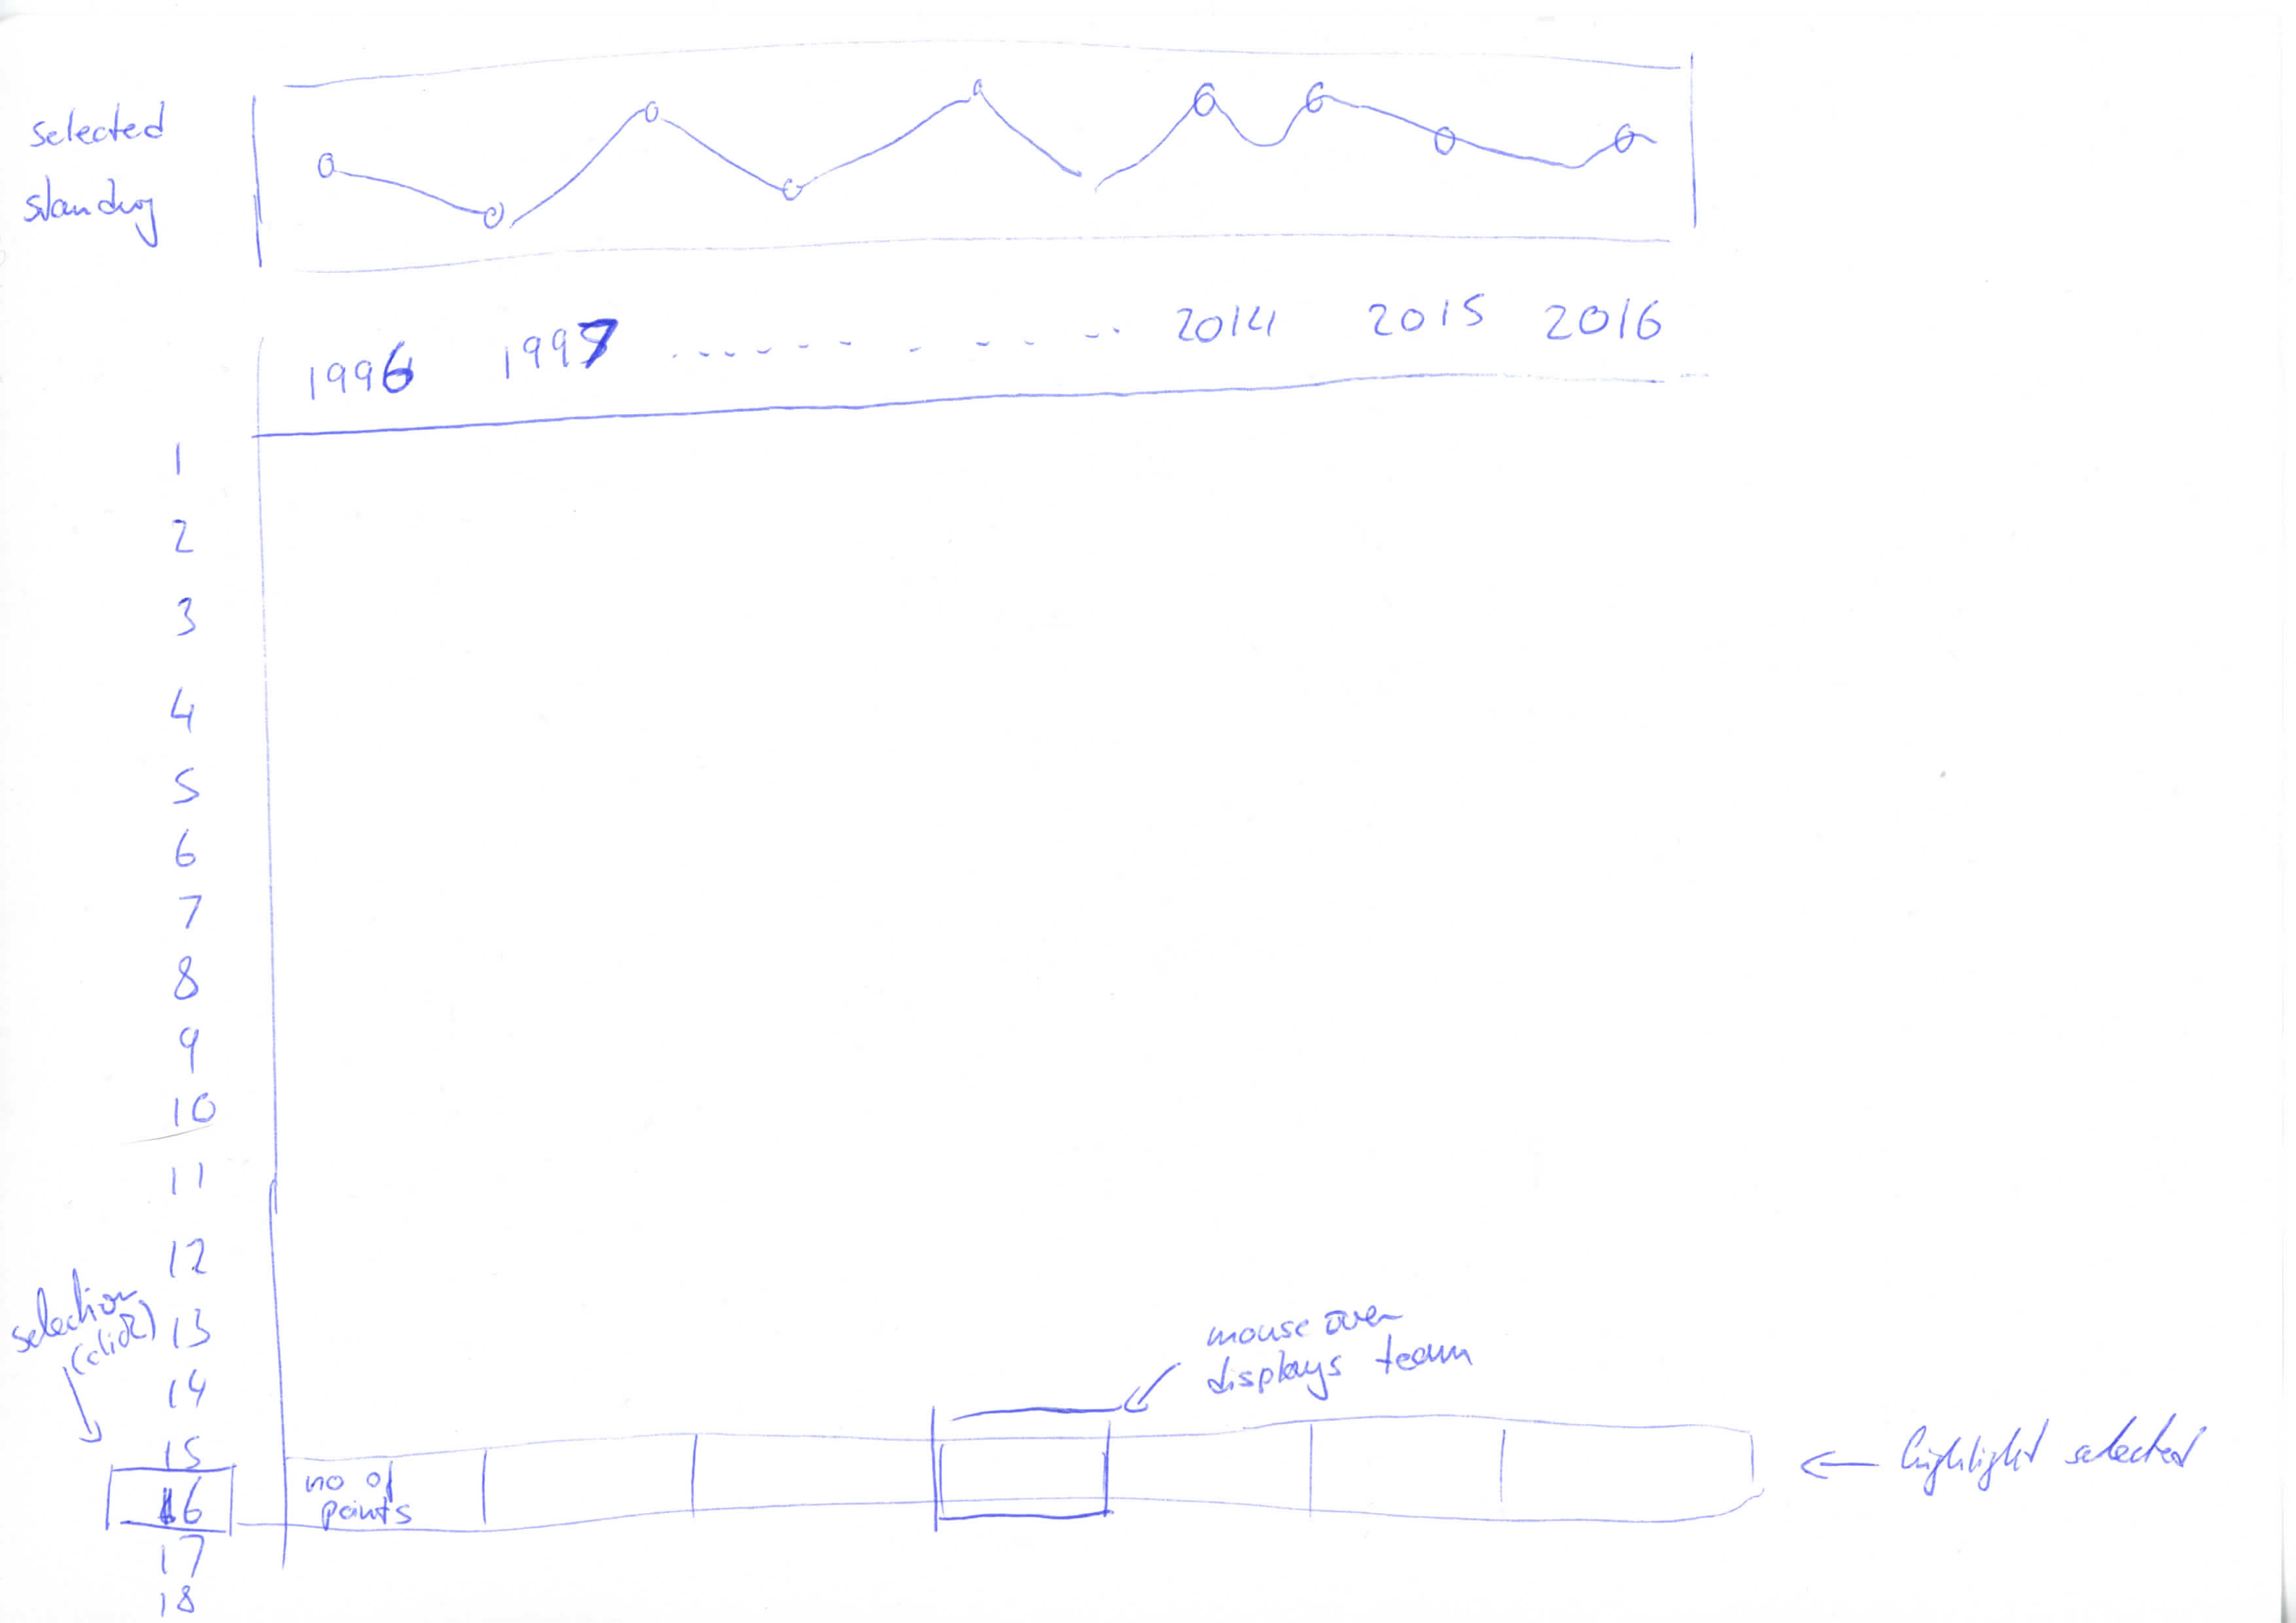 selected
standing
1996 1997 ....- - - - - - -- 2014 2015 2016
1
2
3
4
5
6
7
8
9
10
11
12
selection
(click)
13
14
15
16
17
18
no of
points
mouse over
displays team
← highlight selected